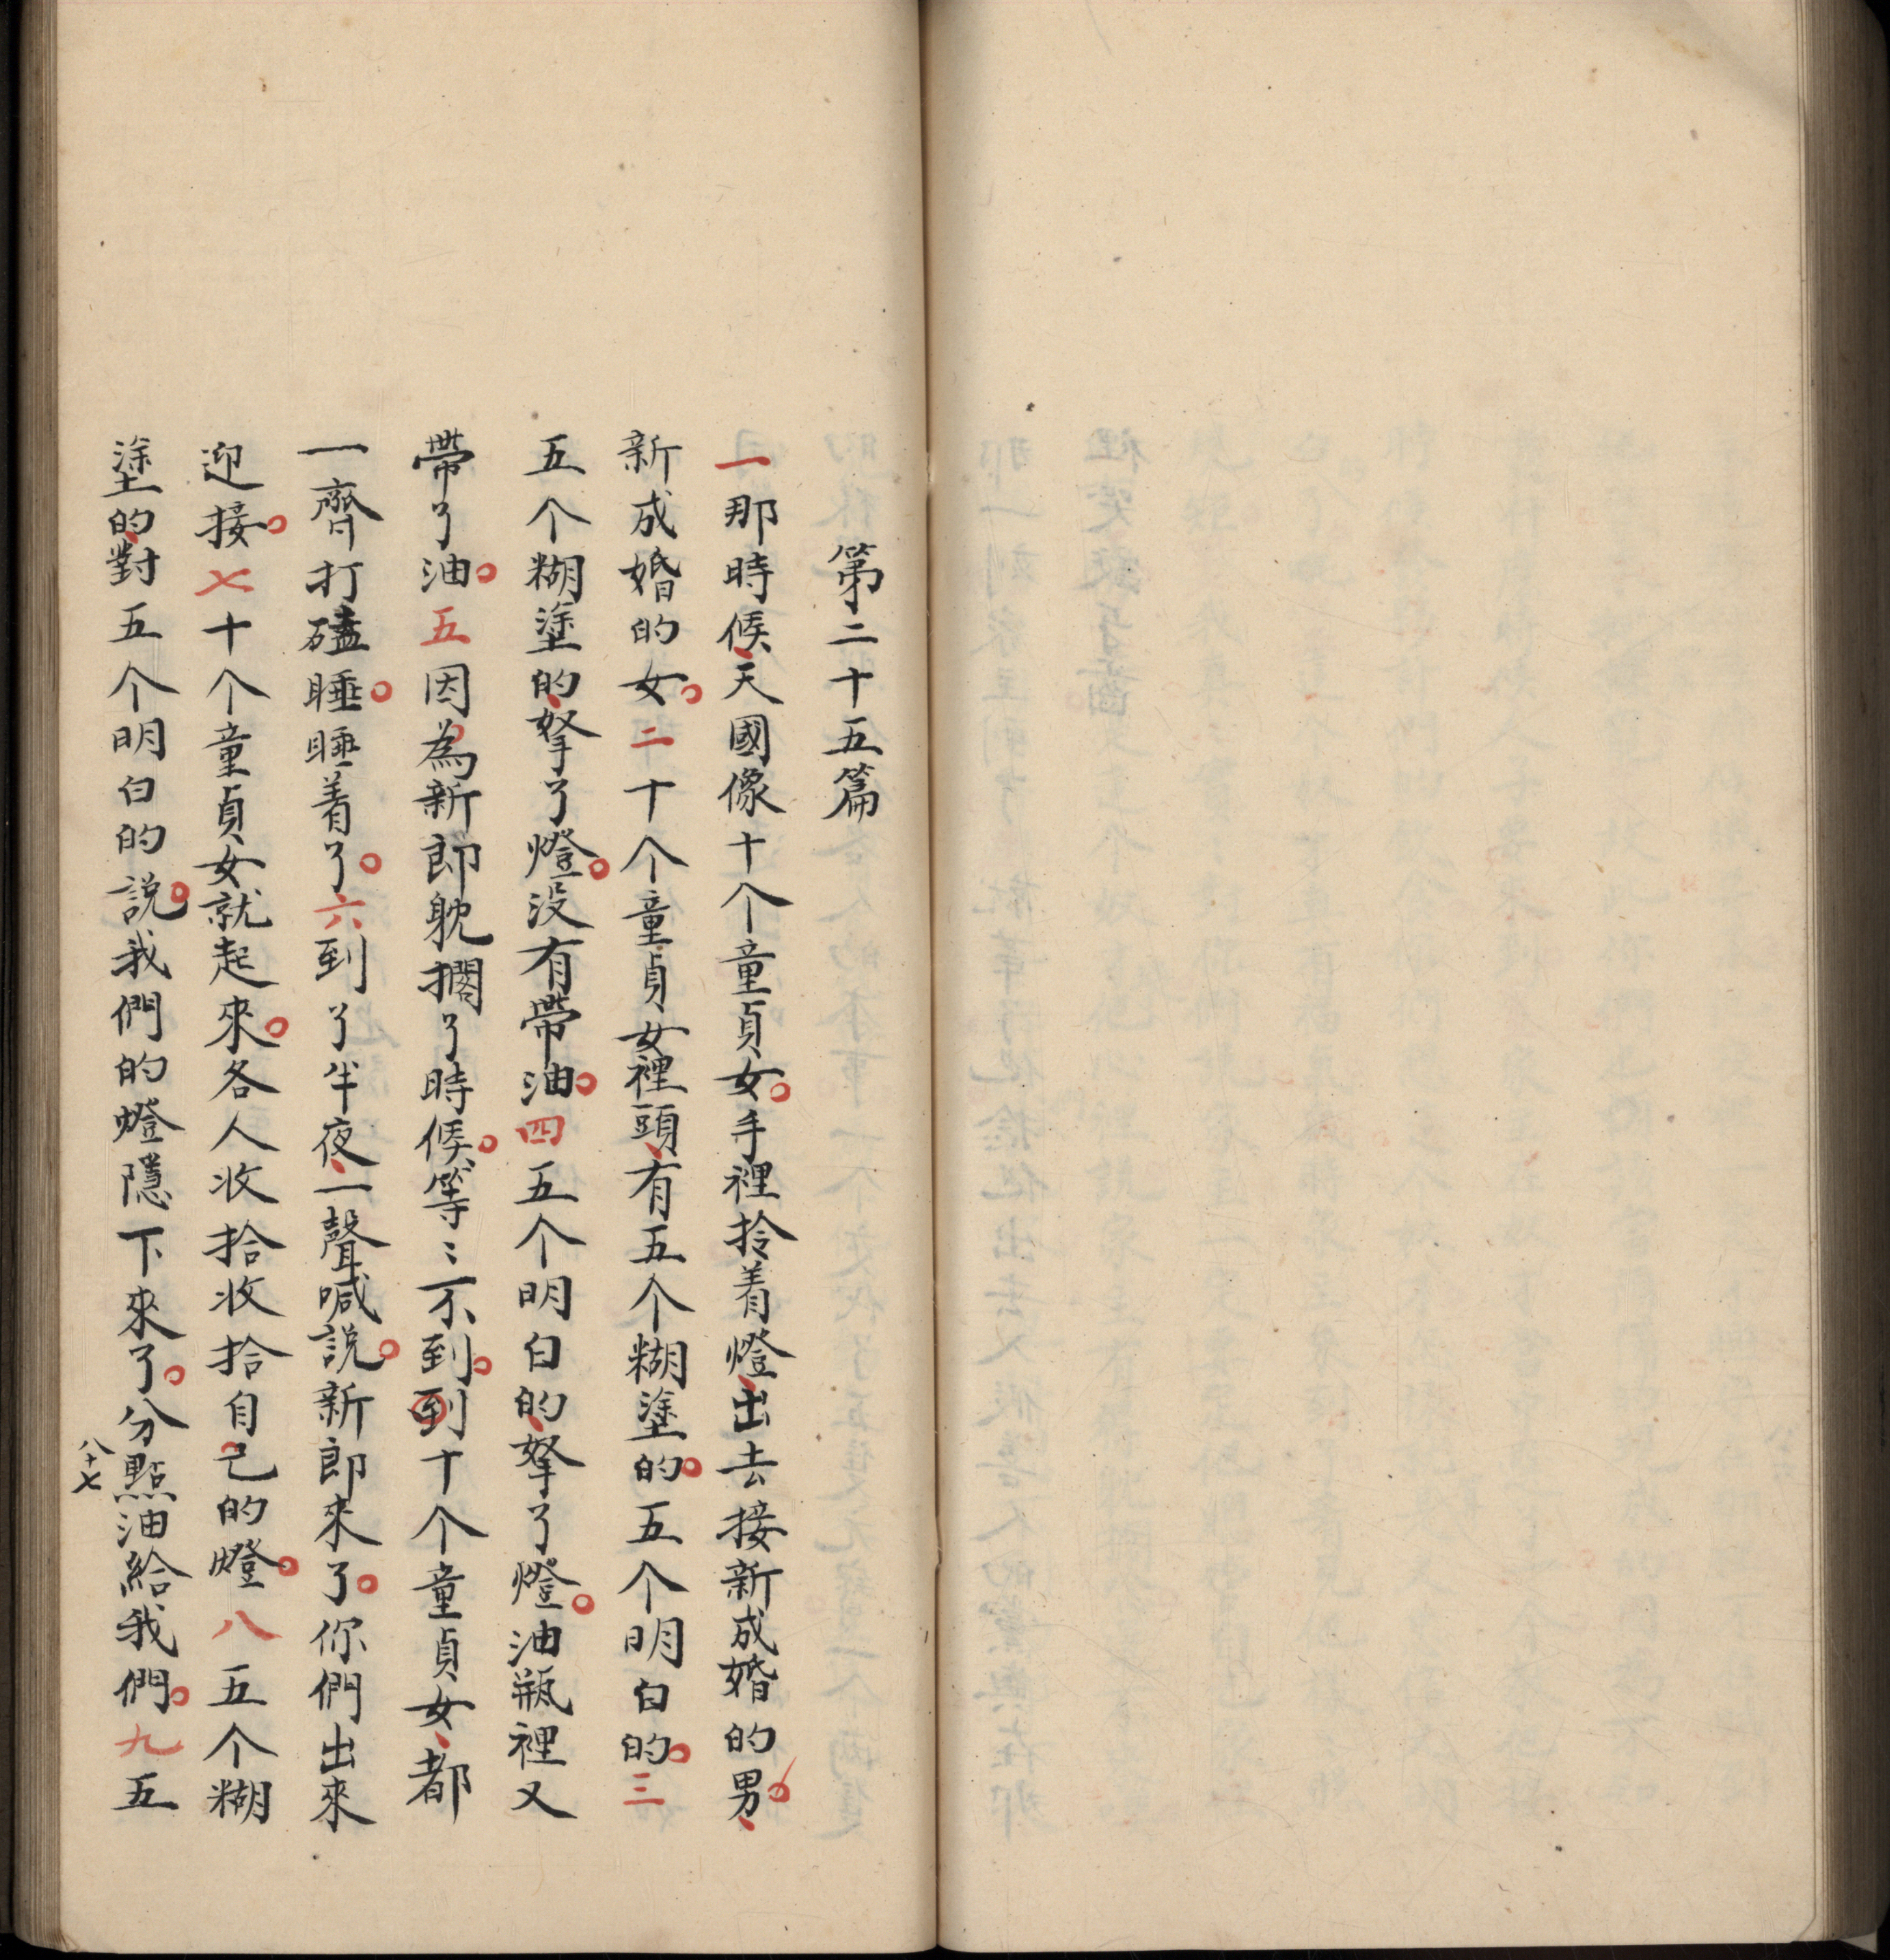 第二十五篇
一那時候、天國像十个童貞女。手裡拎着燈、出去接新成婚的男。、
新成婚的女。二十个童貞女裡頭、有五个糊塗的。五个明白的。三
五个糊塗的、拏了燈。没有帶油。四五个明白的、拏了燈。油瓶裡又
帶了油。五因為新郎躭擱了時候。等〻不到。到十个童貞女、都
一齊打磕睡。睡着了。六到了半夜、一聲喊説。新郎來了。你們出來
迎接。七十个童貞女就起來。各人收拾收拾自己的燈。八五个糊
塗的、對五个明白的説。我們的燈隱下來了。分點油給我們。九五
八十七